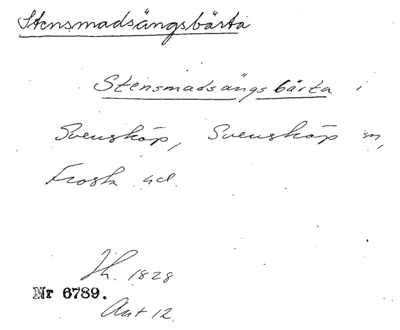 Stensmadsängsbärta
Stensmadsängsbärta
Svensköp, Svensköp sn,
Frosta hd.
Jh. 1828
Nr 6789.
Akt 12